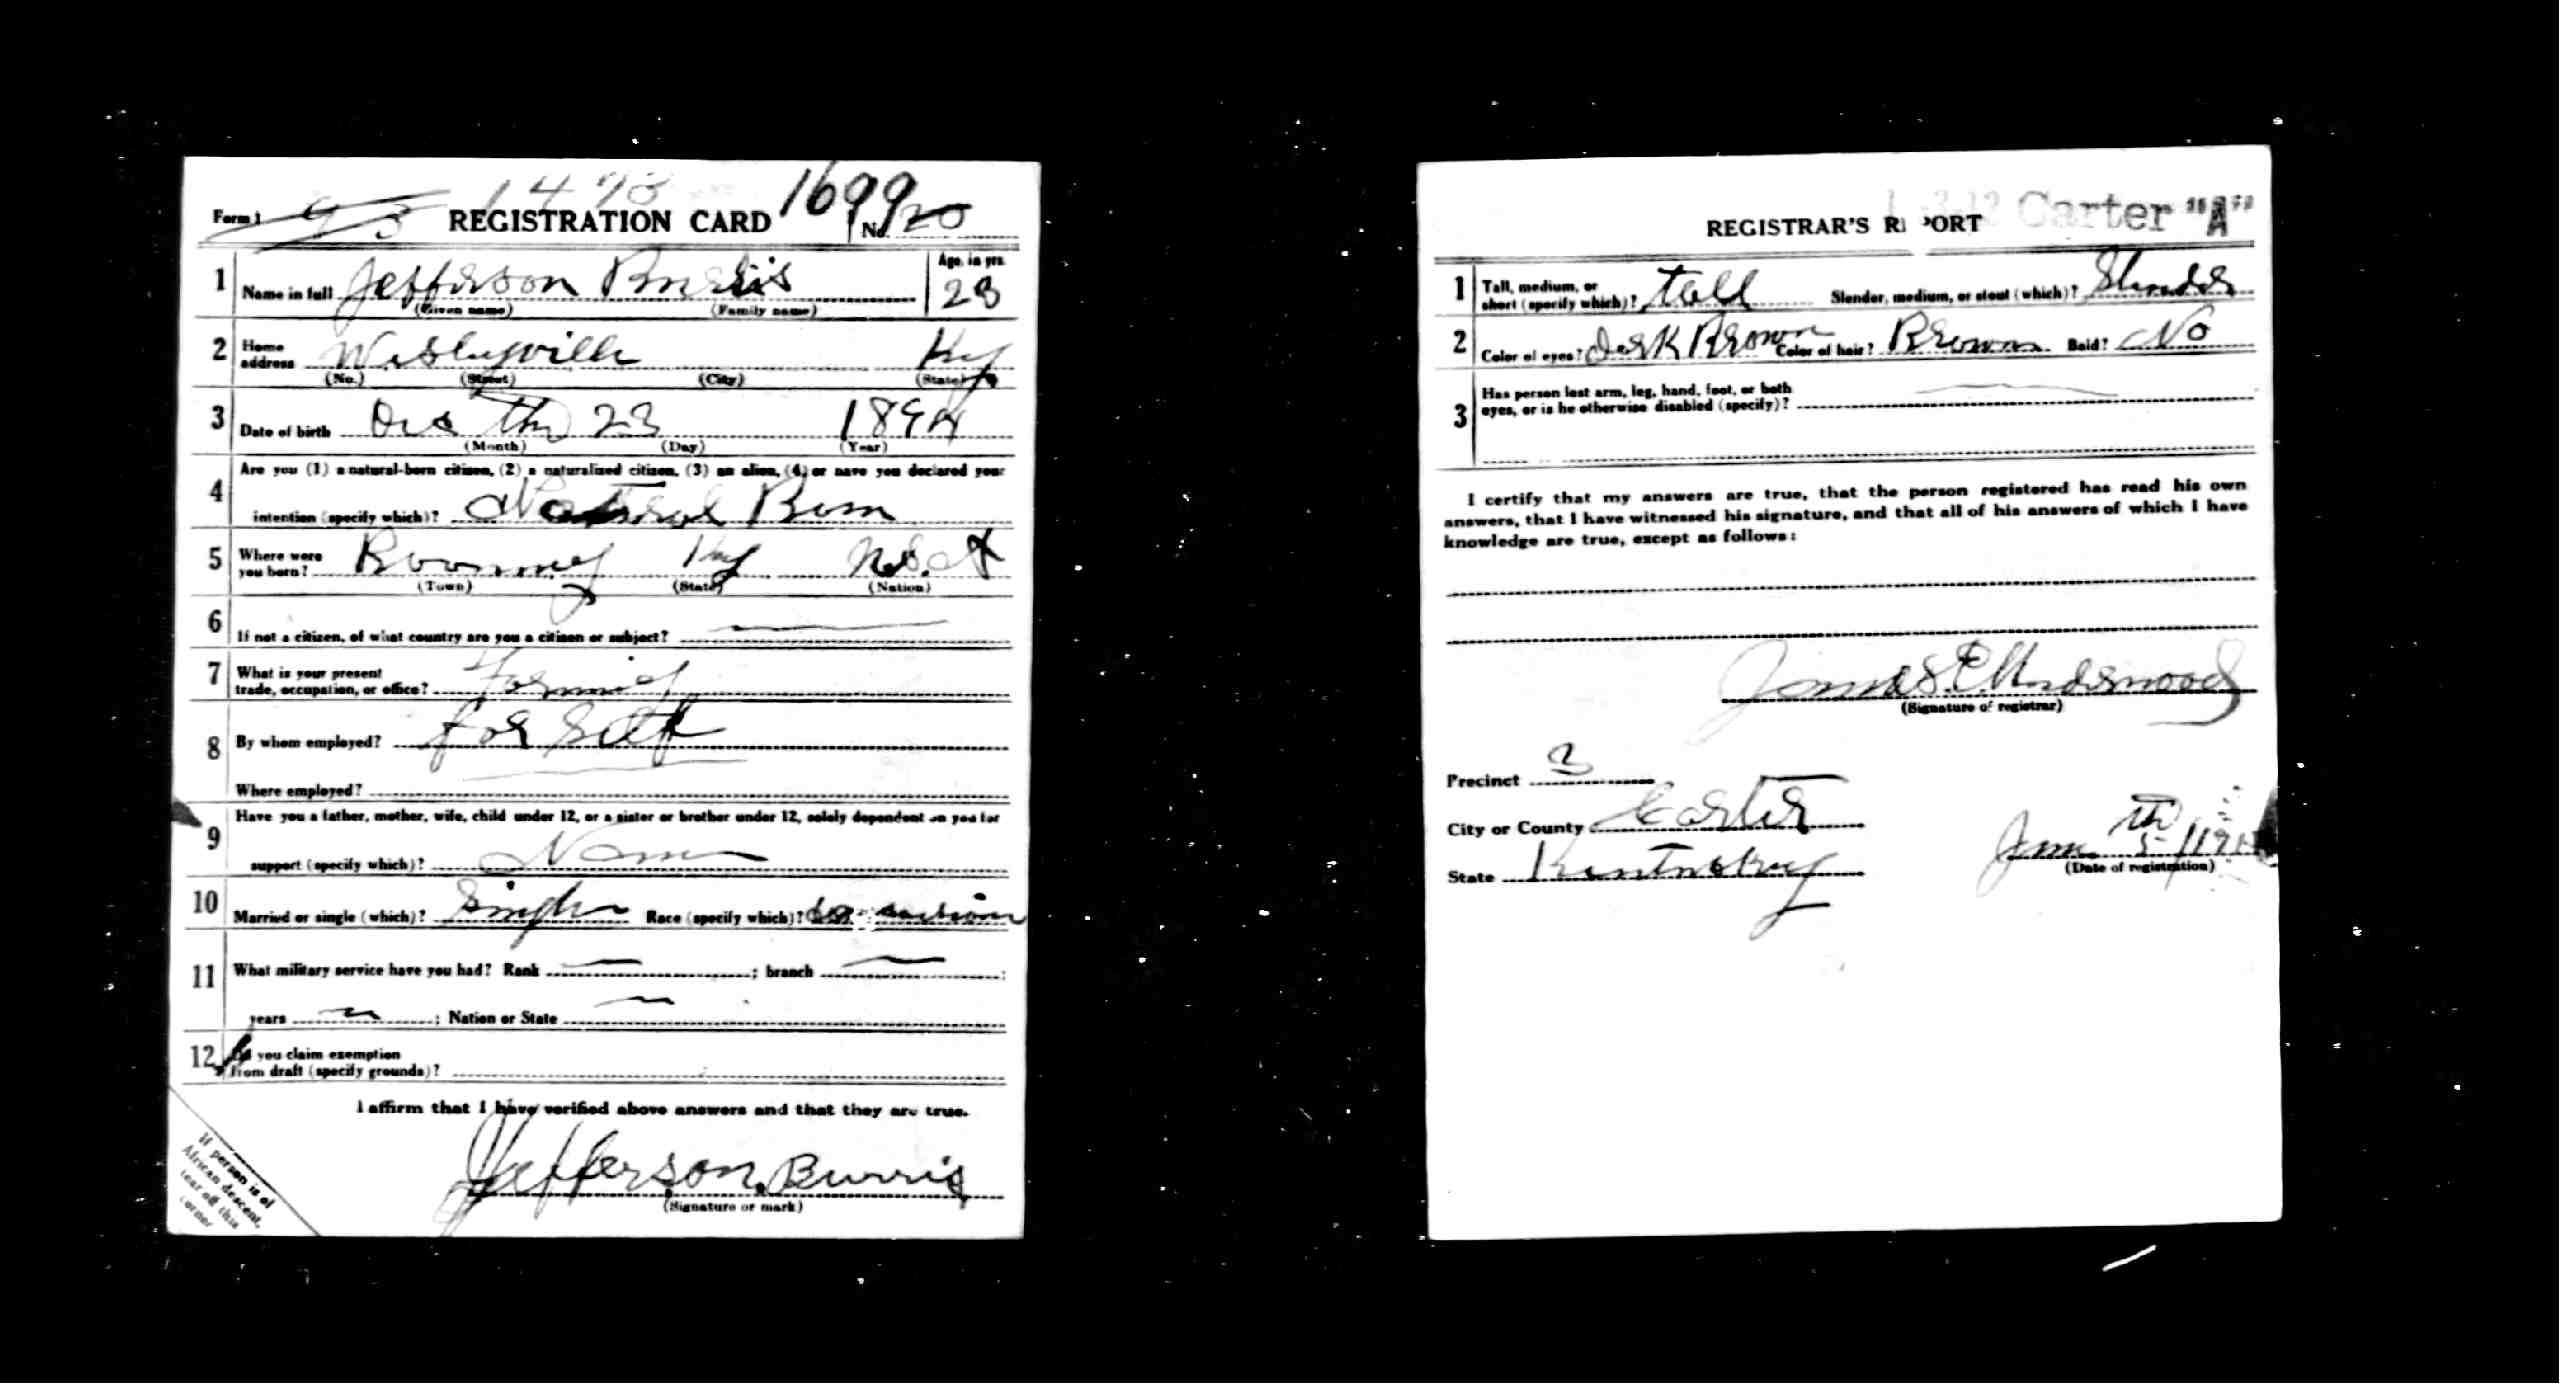 1473
1699
Form 1 93 REGISTRATION CARD No. 20
1 Name in full Jefferson Burris Age, in yrs. 23
(Given name) (Family name)
2 Home address Wesleyville Ky
(No.) (Street) (City) (State)
3 Date of birth 23 1894
(Month) (Day) (Year)
4 Are you (1) a natural-born citizen, (2) a naturalized citizen, (3) an alien, (4) or have you declared your
intention (specify which)? Natural Born
5 Where were you born? Ky
(Town) (State) (Nation)
6 If not a citizen, of what country are you a citizen or subject?
7 What is your present
trade, occupation, or office? Farming
8 By whom employed? for Self
Where employed?
9 Have you a father, mother, wife, child under 12, or a sister or brother under 12, solely dependent on you for
support (specify which)? None
10 Married or single (which)? Single Race (specify which)?
11 What military service have you had? Rank ; branch ;
years ; Nation or State
12 Do you claim exemption
from draft (specify grounds)?
I affirm that I have verified above answers and that they are true.
Jefferson Burris
(Signature or mark)
If person is of
African descent,
tear off this
corner
Carter "A"
REGISTRAR'S REPORT
1 Tall, medium, or
short (specify which)? tall Slender, medium, or stout (which)? Slender
2 Color of eyes? Dark Brown Color of hair? Brown Bald? No
3 Has person lost arm, leg, hand, foot, or both
eyes, or is he otherwise disabled (specify)?
I certify that my answers are true, that the person registered has read his own
answers, that I have witnessed his signature, and that all of his answers of which I have
knowledge are true, except as follows:
James E Underwood
(Signature of registrar)
Precinct 3
City or County Carter
State Kentucky June 5th 1917
(Date of registration)